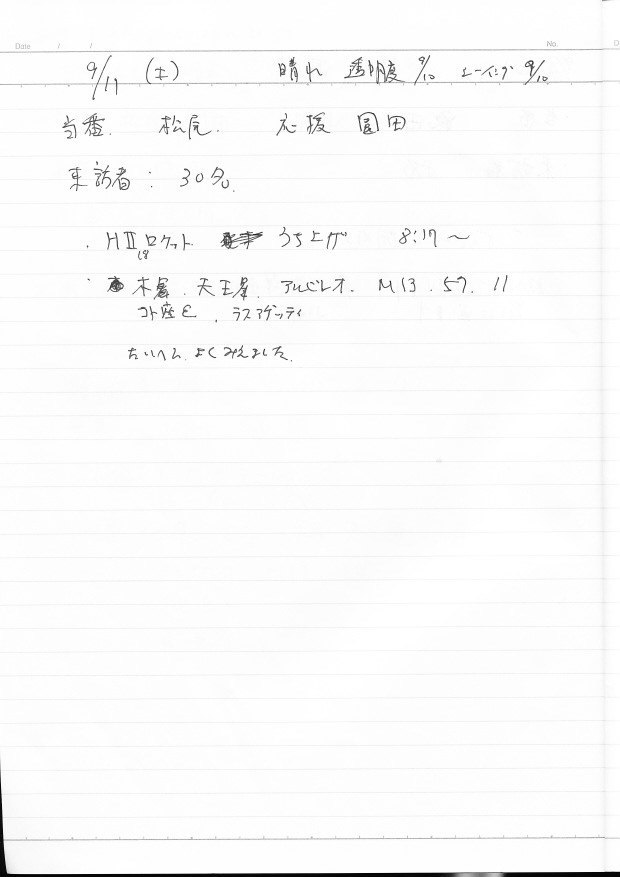 Date / / No.
9/11 (土) 晴れ 透明度 9/10 シーイング 9/10
当番. 松尾. 応援 園田
来訪者: 30名.
・HⅡロケット 18 うち上げ 8:17〜
・木星. 天王星. アルビレオ. M13. 57. 11
コト座ε, ラスアゲッティ
たいへん よくみえました.